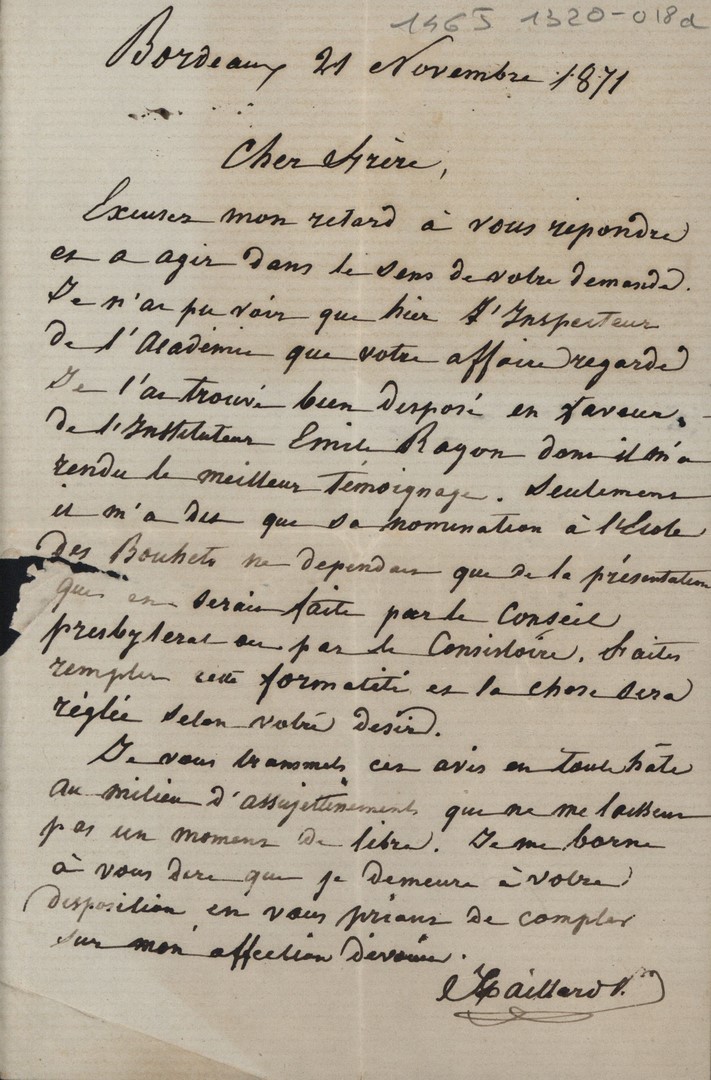 1465 1320-018d
Bordeaux 21 Novembre 1871
Cher Frère,
Excusez mon retard à vous répondre
et a agir dans le sens de votre demande.
Je n'ai pu voir que hier l'Inspecteur
de l'Académie que votre affaire regarde
Je l'ai trouvé bien disposé en faveur
de l'Instituteur Emile Rayon dont il m'a
rendu le meilleur témoignage. Seulement
il m'a dit que sa nomination à l'Ecole
Des Bouhets ne dépendait que de la présentation
qui en serait faite par le Conseil
presbyteral ou par le Consistoire. Faites
remplir cette formalité et la chose sera
réglée selon votre désir.
Je vous transmets ces avis en toute hâte
au milieu d'assujettissements qui ne me laissent
pas un moment de libre. Je me borne
à vous dire que je demeure à votre
disposition en vous priant de compter
sur mon affection dévouée.